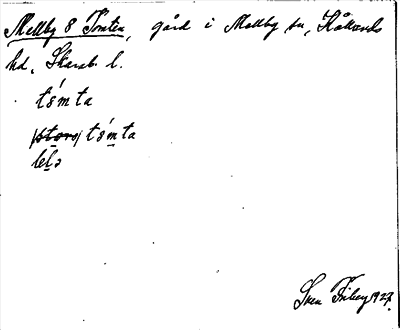 Mellby 8 Tomten, gård i Mellby sn, Kållands
hd, Skarab. l.
tó́mta
/stora/ tó́mta
lɩlə
Sven Friberg 1927.